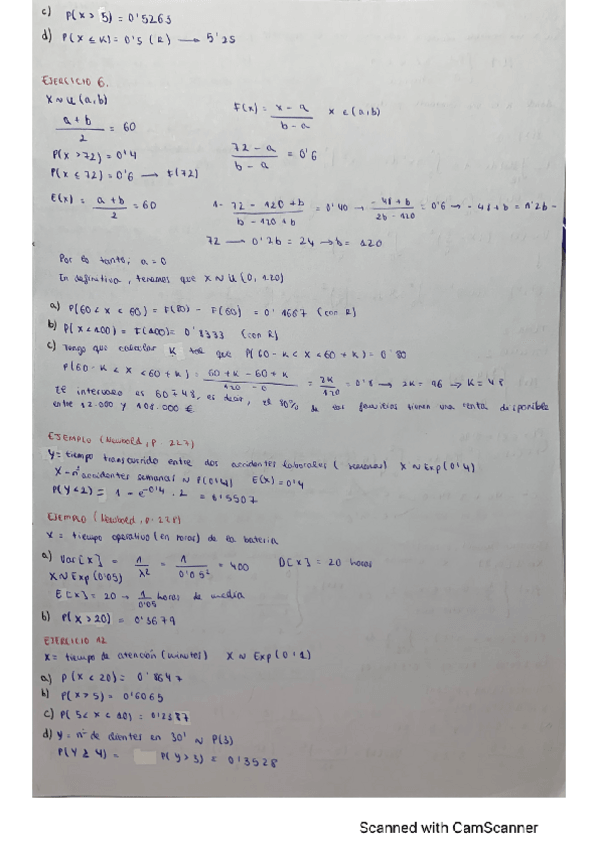 c) P(x > 5) = 0'5263
d) P(x ≤ K) = 0'5 (R) → 5'25
EJERCICIO 6.
X ~ U (a,b)
F(x) = x - a / b - a   x ∈ (a,b)
a + b / 2 = 60
P(x > 72) = 0'4
72 - a / b - a = 0'6
P(x ≤ 72) = 0'6 → F(72)
E(x) = a + b / 2 = 60   1 - 72 - 120 + b / b - 120 + b = 0'40 → - 48 + b / 2b - 120 = 0'6 → - 48 + b = 1'2b -
72 → 0'2b = 24 → b = 120
Por lo tanto, a = 0
En definitiva, tenemos que X ~ U (0, 120)
a) P(60 < x < 80) = F(80) - F(60) = 0'1667 (con R)
b) P(x < 100) = F(100) = 0'8333 (con R)
c) Tengo que calcular K tal que P(60 - K < x < 60 + K) = 0'80
P(60 - K < x < 60 + K) = 60 + K - 60 + K / 120 - 0 = 2K / 120 = 0'8 → 2K = 96 → K = 48
El intervalo es 60 ∓ 48, es decir, el 80% de las familias tienen una renta disponible
entre 12.000 y 108.000 €
EJEMPLO (Newbold, p. 227)
Y = tiempo transcurrido entre dos accidentes laborales (semanas) X ~ Exp(0'4)
X - nº accidentes semanas ~ P(0'4) E(x) = 0'4
P(Y < 2) = 1 - e^-0'4 · 2 = 0'5507
EJEMPLO (Newbold, p. 228)
X = tiempo operativo (en horas) de la batería
a) Var[x] = 1 / λ² = 1 / 0'05² = 400   D[x] = 20 horas
X ~ Exp(0'05)
E[x] = 20 → 1 / 0'05 horas de media
b) P(x > 20) = 0'3679
EJERCICIO 12
X = tiempo de atención (minutos) X ~ Exp(0'1)
a) P(x < 20) = 0'8647
b) P(x > 5) = 0'6065
c) P(5 < x < 10) = 0'2387
d) Y = nº de clientes en 30' ~ P(3)
P(Y ≥ 4) = P(Y > 3) = 0'3528
Scanned with CamScanner